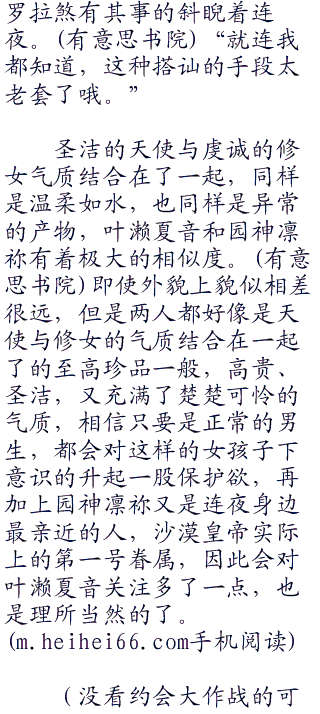 罗拉煞有其事的斜睨着连
夜。(有意思书院) “就连我
都知道，这种搭讪的手段太
老套了哦。”
圣洁的天使与虔诚的修
女气质结合在了一起，同样
是温柔如水，也同样是异常
的产物，叶濑夏音和园神凛
祢有着极大的相似度。(有意
思书院)即使外貌上貌似相差
很远，但是两人都好像是天
使与修女的气质结合在一起
了的至高珍品一般，高贵、
圣洁，又充满了楚楚可怜的
气质，相信只要是正常的男
生，都会对这样的女孩子下
意识的升起一股保护欲，再
加上园神凛祢又是连夜身边
最亲近的人，沙漠皇帝实际
上的第一号眷属，因此会对
叶濑夏音关注多了一点，也
是理所当然的了。
(m.heihei66.com手机阅读)
(没看约会大作战的可